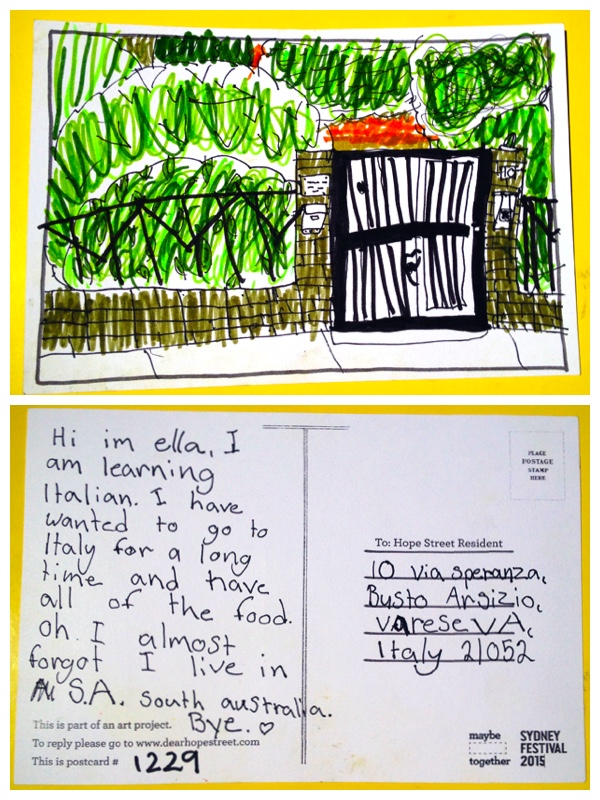 Hi im ella, I
am learning
Italian. I have
wanted to go to
Italy for a long
time and have
all of the food.
oh. I almost
forgot I live in
S.A. south australia.
Bye. ♡
This is part of an art project.
To reply please go to www.dearhopestreet.com
This is postcard # 1229
PLACE
POSTAGE
STAMP
HERE
To: Hope Street Resident
10 via speranza,
Busto Arsizio,
varese VA,
Italy 21052
maybe
together
SYDNEY
FESTIVAL
2015